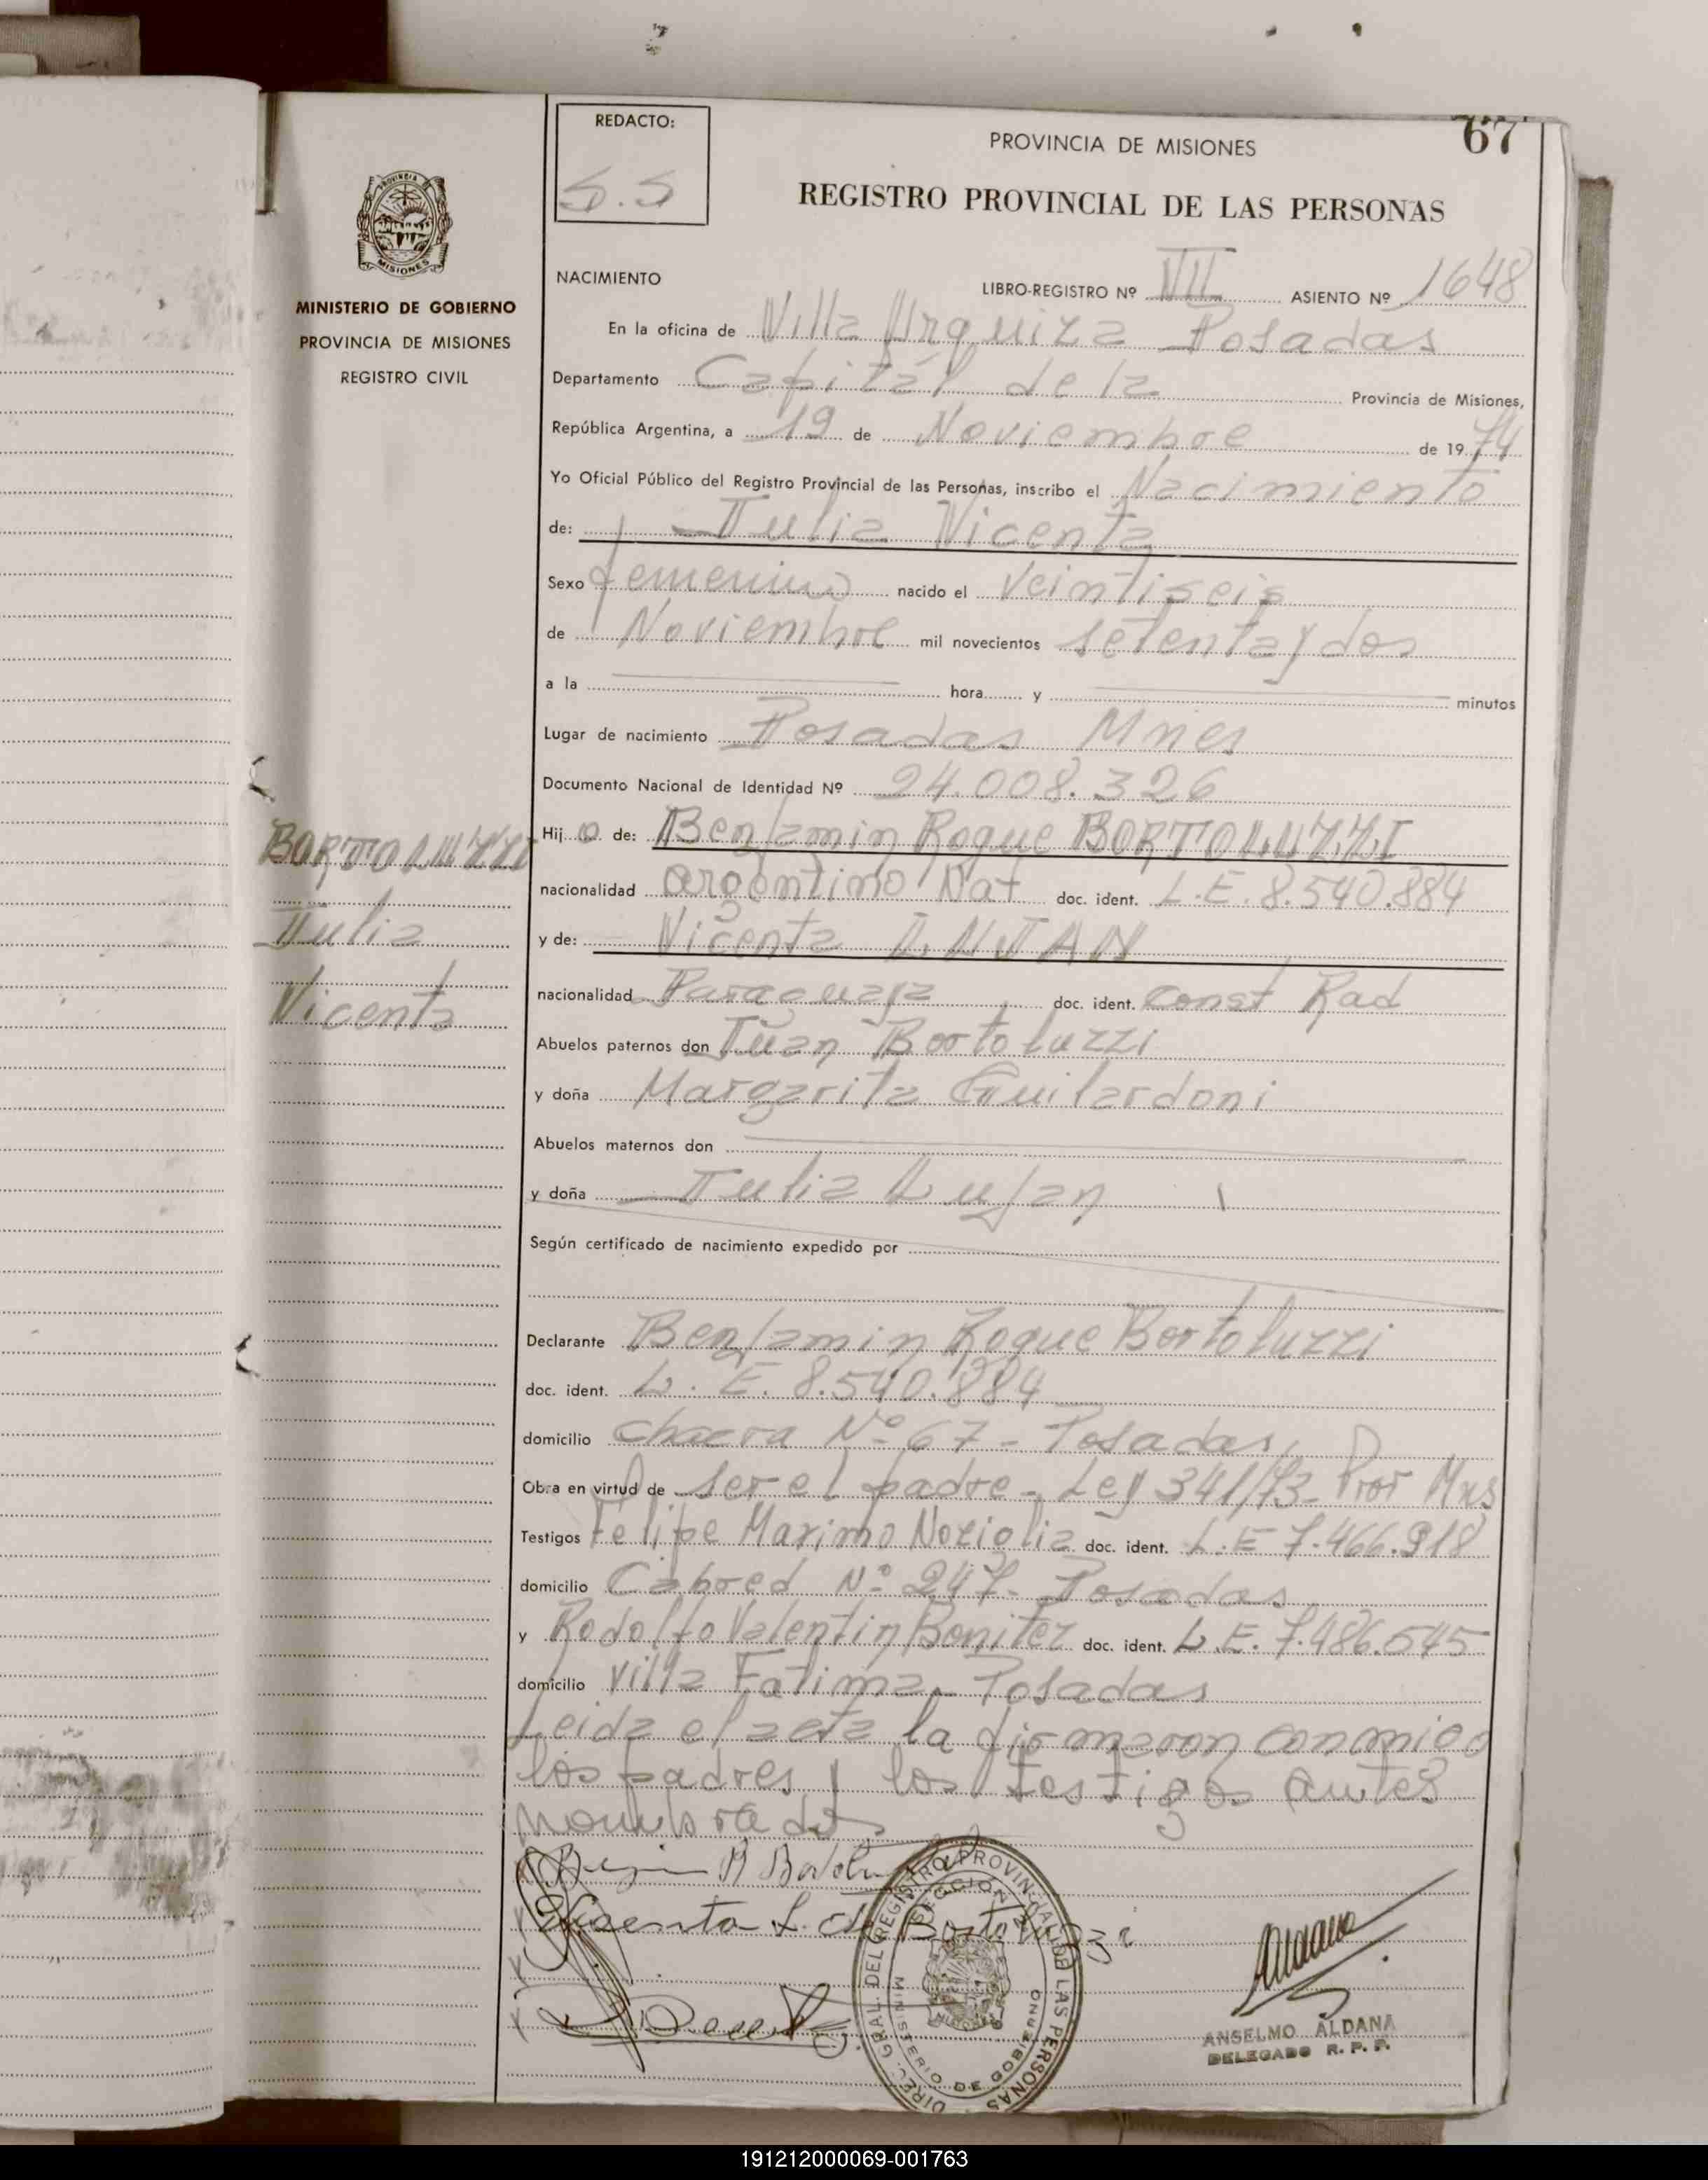 67
REDACTO:
S.S
PROVINCIA DE MISIONES
REGISTRO PROVINCIAL DE LAS PERSONAS
PROVINCIA DE
MISIONES
MINISTERIO DE GOBIERNO
PROVINCIA DE MISIONES
REGISTRO CIVIL
NACIMIENTO LIBRO-REGISTRO Nº VII ASIENTO Nº 1648
En la oficina de Villa Urquiza Posadas
Departamento Capital de la Provincia de Misiones,
República Argentina, a 19 de Noviembre de 1974
Yo Oficial Público del Registro Provincial de las Personas, inscribo el Nacimiento
de: Julia Vicenta
Sexo femenino nacido el veintiseis
de Noviembre mil novecientos setenta y dos
a la hora y minutos
Lugar de nacimiento Posadas Mnes
Documento Nacional de Identidad Nº 24.008.326
BORTOLUZZI
Julia
Vicenta
Hijo de: Benjamin Roque BORTOLUZZI
nacionalidad argentino Nat doc. ident. L.E. 8.540.884
y de: Vicenta LUJAN
nacionalidad Paraguaya doc. ident. Const Rad
Abuelos paternos don Juan Bortoluzzi
y doña Margarita Guilardoni
Abuelos maternos don
y doña Julia Lujan
Según certificado de nacimiento expedido por
Declarante Benjamin Roque Bortoluzzi
doc. ident. L. E. 8.540.884
domicilio chacra Nº 67 - Posadas
Obra en virtud de ser el padre - Ley 341/73 - Mns
Testigos Felipe Maximo doc. ident. L.E 7.466.918
domicilio Cabred Nº 247 - Posadas
y Rodolfo Valentin Benitez doc. ident. L.E. 7.486.545
domicilio Villa Fatima - Posadas
Leida el acta la firmaron conmigo
los padres y los testigos antes
nombrados
Vicenta L. de Bortoluzzi
DIREC. GRAL. DEL REGISTRO PROVINCIAL DE LAS PERSONAS
SECCION
MINISTERIO DE GOBIERNO
ANSELMO ALDANA
DELEGADO R. P. P.
191212000069-001763